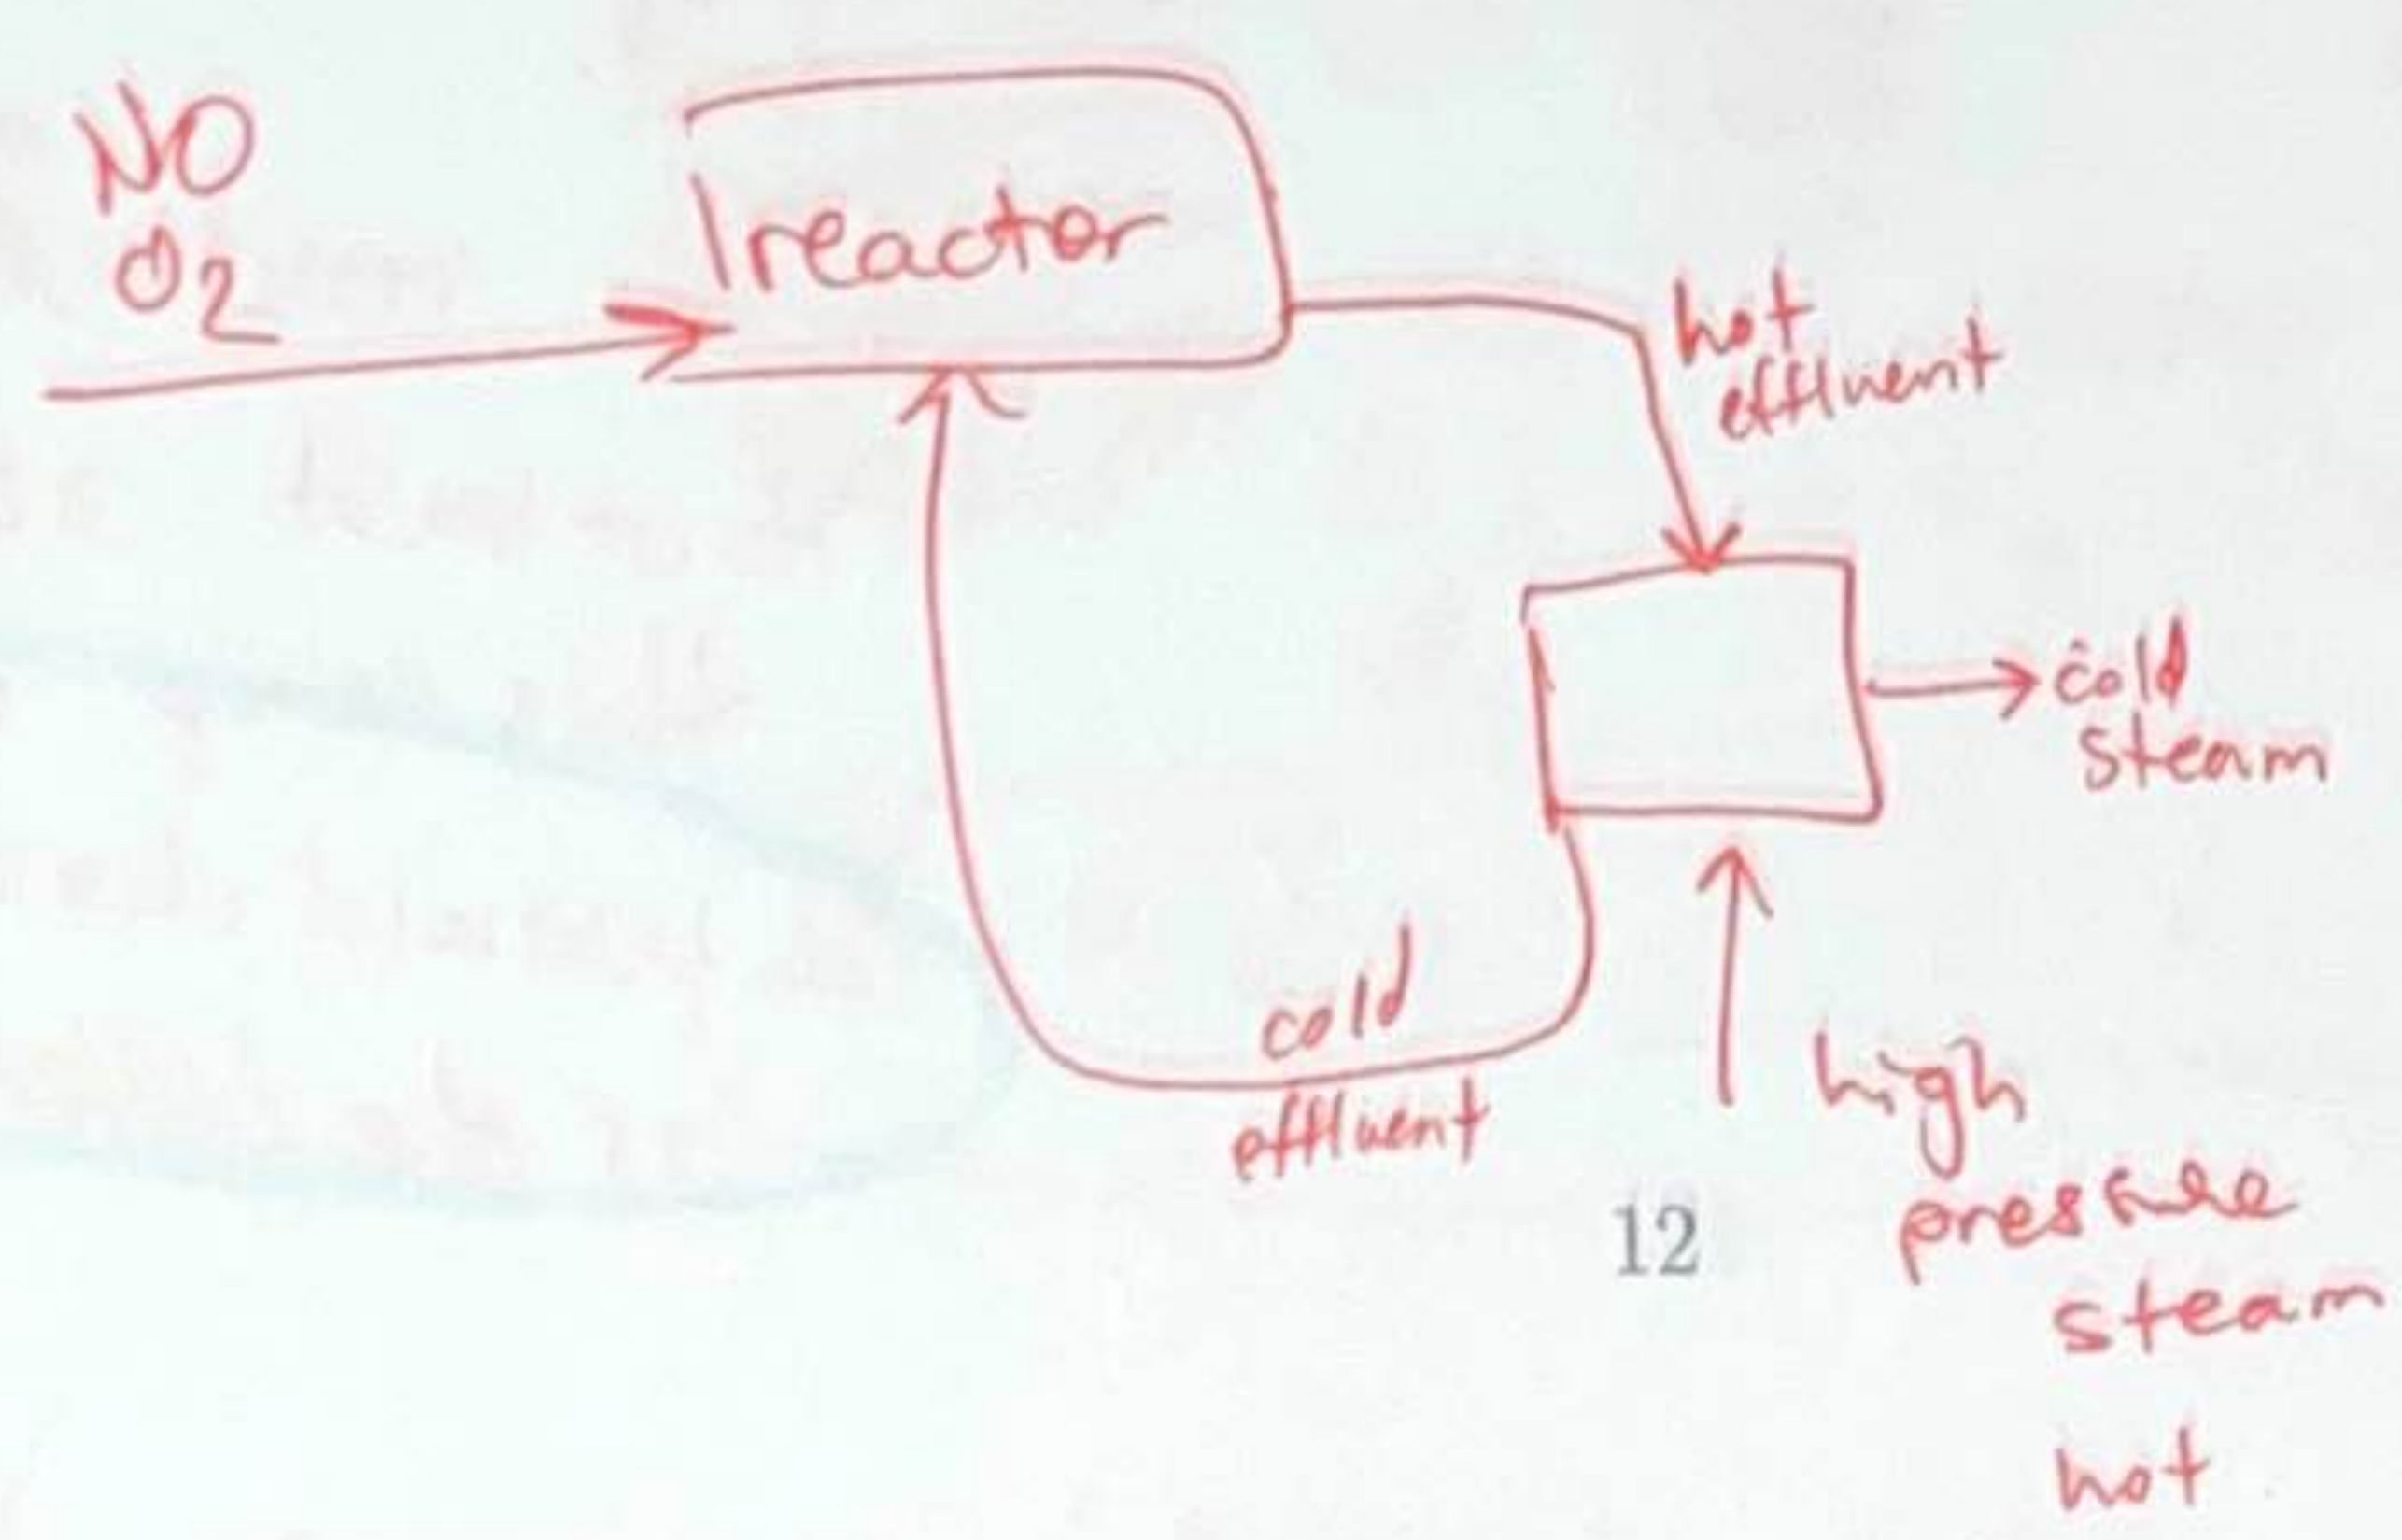 NO
O2
reactor
hot
effluent
cold
steam
cold
effluent
high
pressure
steam
hot
12